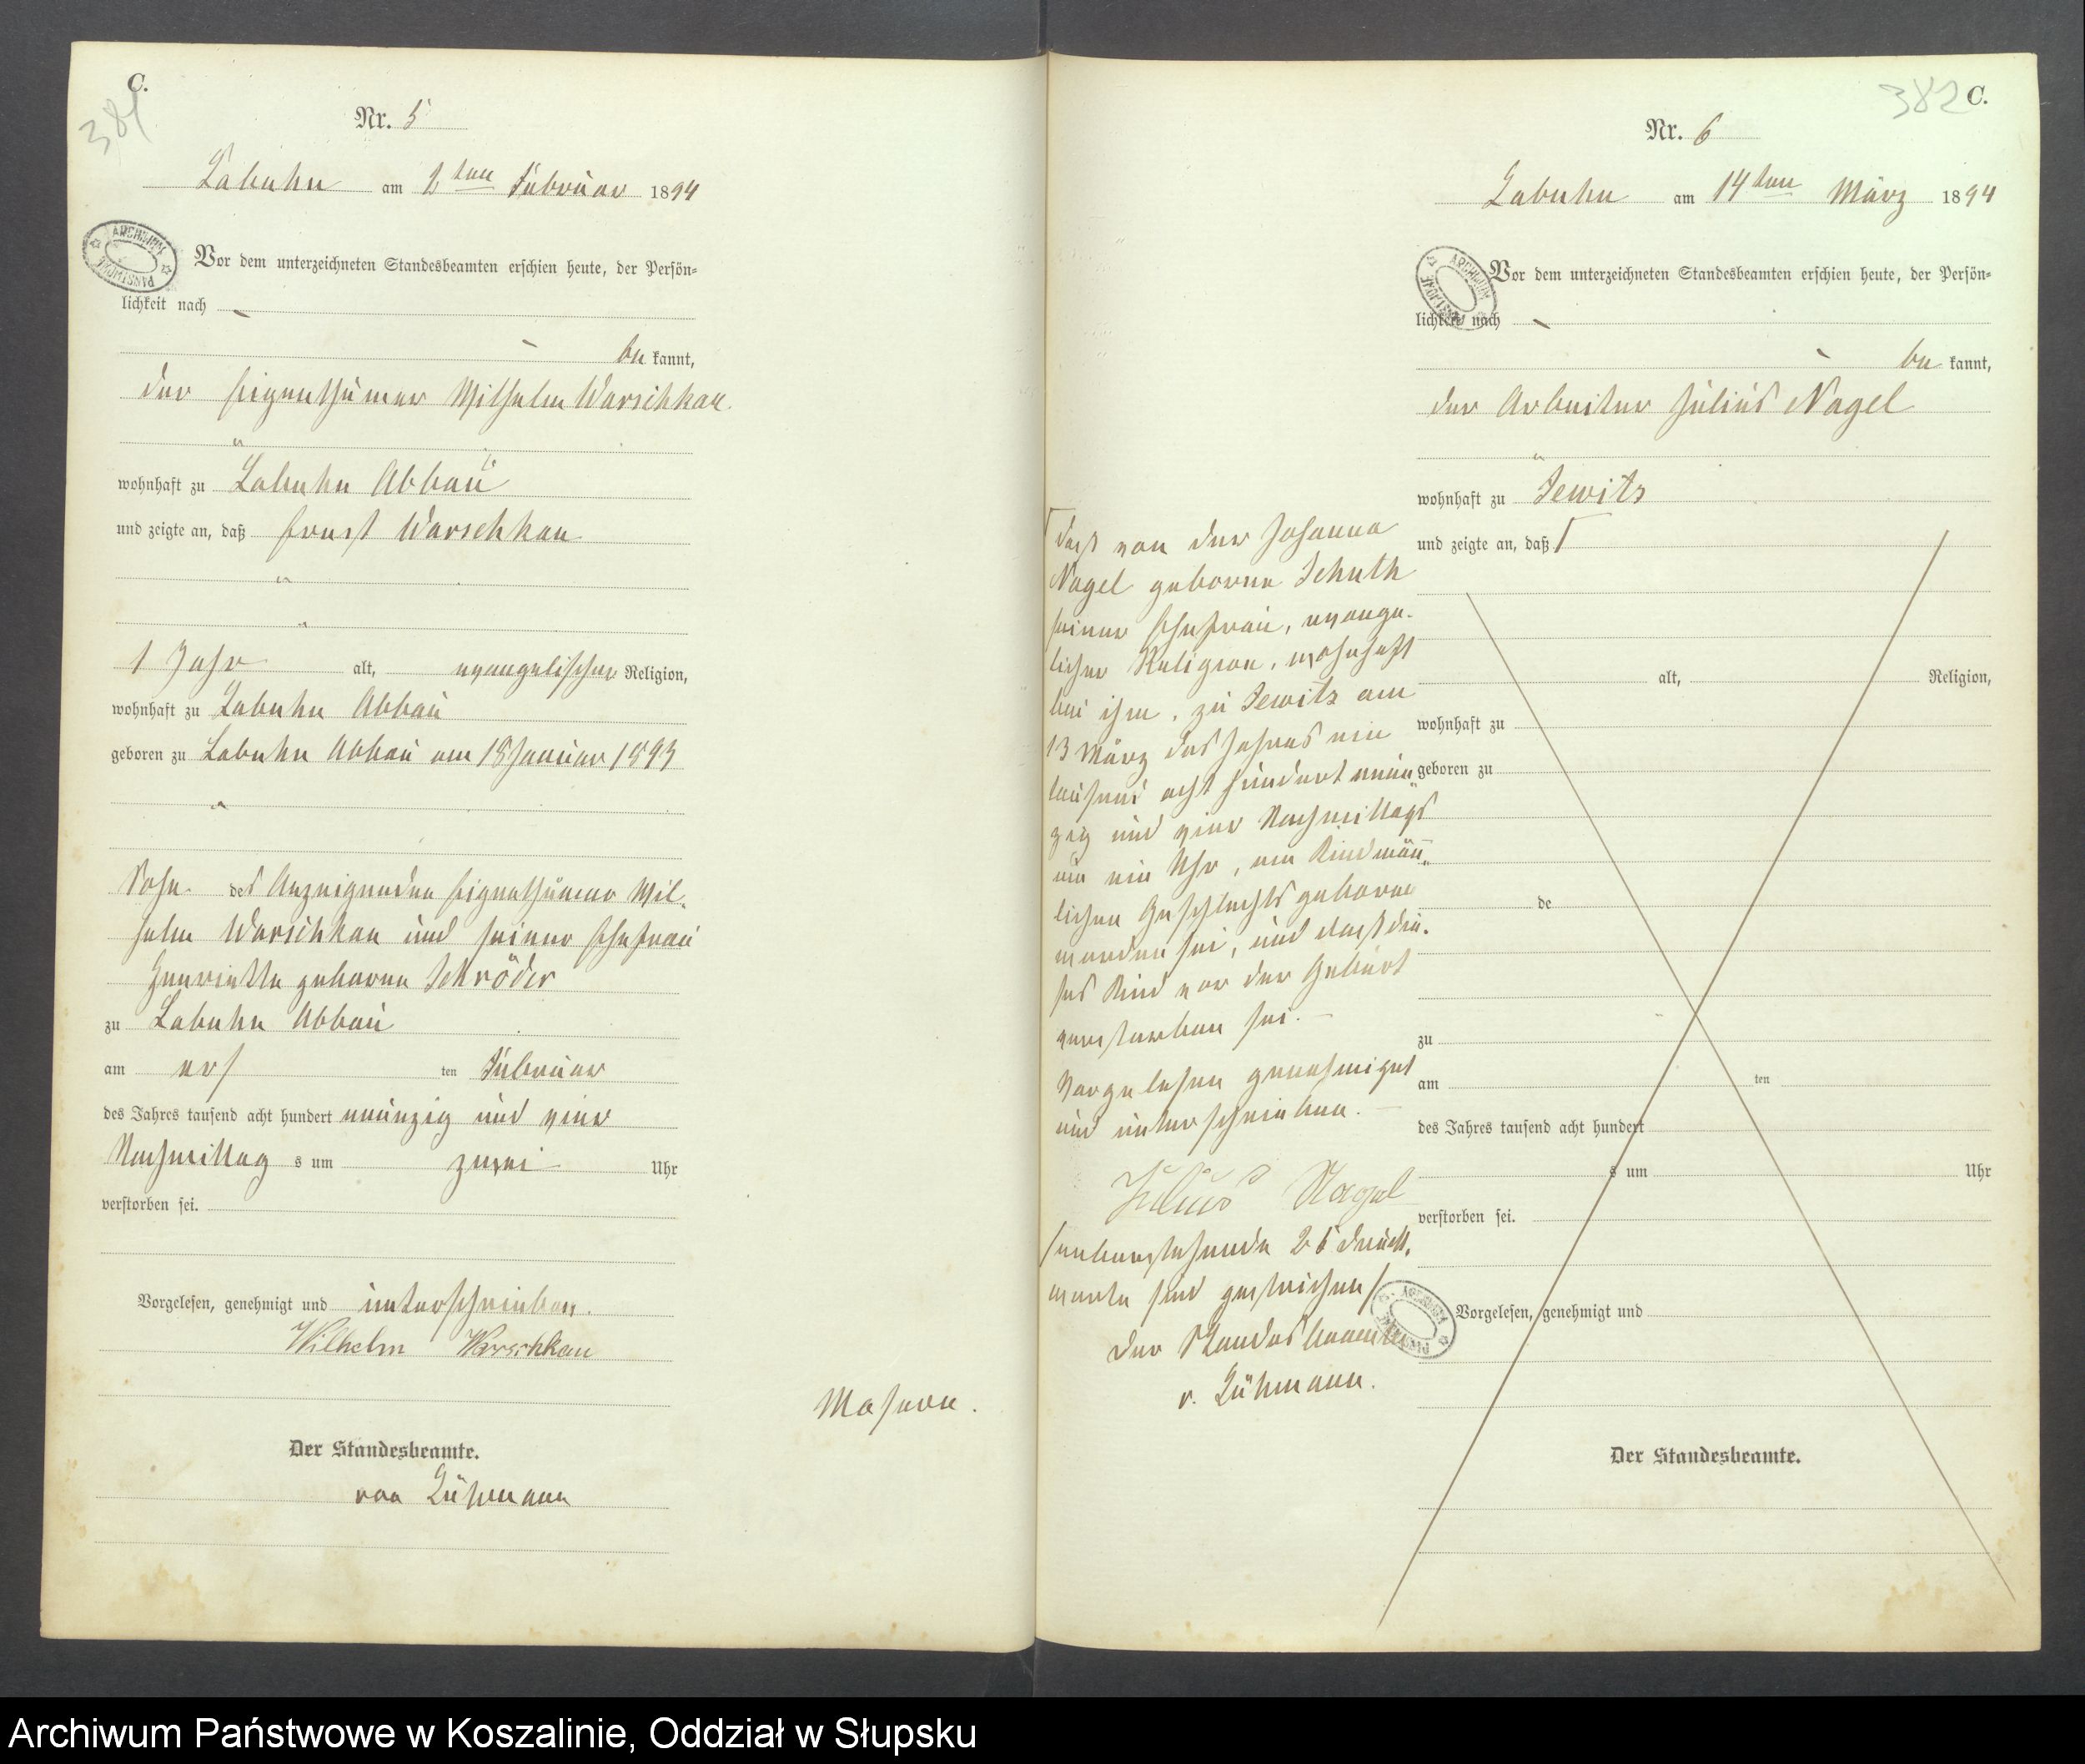 C.
381
Nr. 5
Labuhn am 2ten Februar 1894
ARCHIWUM PAŃSTWOWE
Vor dem unterzeichneten Standesbeamten erschien heute, der Persön-
lichkeit nach
be kannt,
der Eigenthümer Wilhelm Warschkau
wohnhaft zu Labuhn Abbau
und zeigte an, daß Ernst Warschkau
1 Jahr alt, evangelischer Religion,
wohnhaft zu Labuhn Abbau
geboren zu Labuhn Abbau am 18 Januar 1893
Sohn des Anzeigenden Eigenthümer Wil-
helm Warschkau und seiner Ehefrau
Henriette geborne Schröder
zu Labuhn Abbau
am ers ten Februar
des Jahres tausend acht hundert neunzig und vier
Nachmittag s um zwei Uhr
verstorben sei.
Vorgelesen, genehmigt und unterschrieben.
Wilhelm Warschkau
Der Standesbeamte.
von Lühmann
Masern.
382 C.
Nr. 6
Labuhn am 14ten März 1894
ARCHIWUM PAŃSTWOWE
Vor dem unterzeichneten Standesbeamten erschien heute, der Persön-
lichkeit nach
be kannt,
der Arbeiter Julius Nagel
wohnhaft zu Jewitz
und zeigte an, daß Γ
alt, Religion,
wohnhaft zu
geboren zu
de
zu
am ten
des Jahres tausend acht hundert
s um Uhr
verstorben sei.
Vorgelesen, genehmigt und
Der Standesbeamte.
Γ daß von der Johanna
Nagel geborne Schuth
seiner Ehefrau, evange-
lischer Religion, wohnhaft
bei ihm, zu Jewitz am
13 März des Jahres ein
tausend acht hundert neun
zig und vier Nachmittags
um ein Uhr, ein Kind männ-
lichen Geschlechts geboren
worden sei, und daß die-
ses Kind vor der Geburt
verstorben sei.
Vorgelesen genehmigt
und unterschrieben.
Julius Nagel
/nebenstehende 26 Druck-
worte sind gestrichen/
ARCHIWUM PAŃSTWOWE
Der Standesbeamte
v. Lühmann.
Archiwum Państwowe w Koszalinie, Oddział w Słupsku